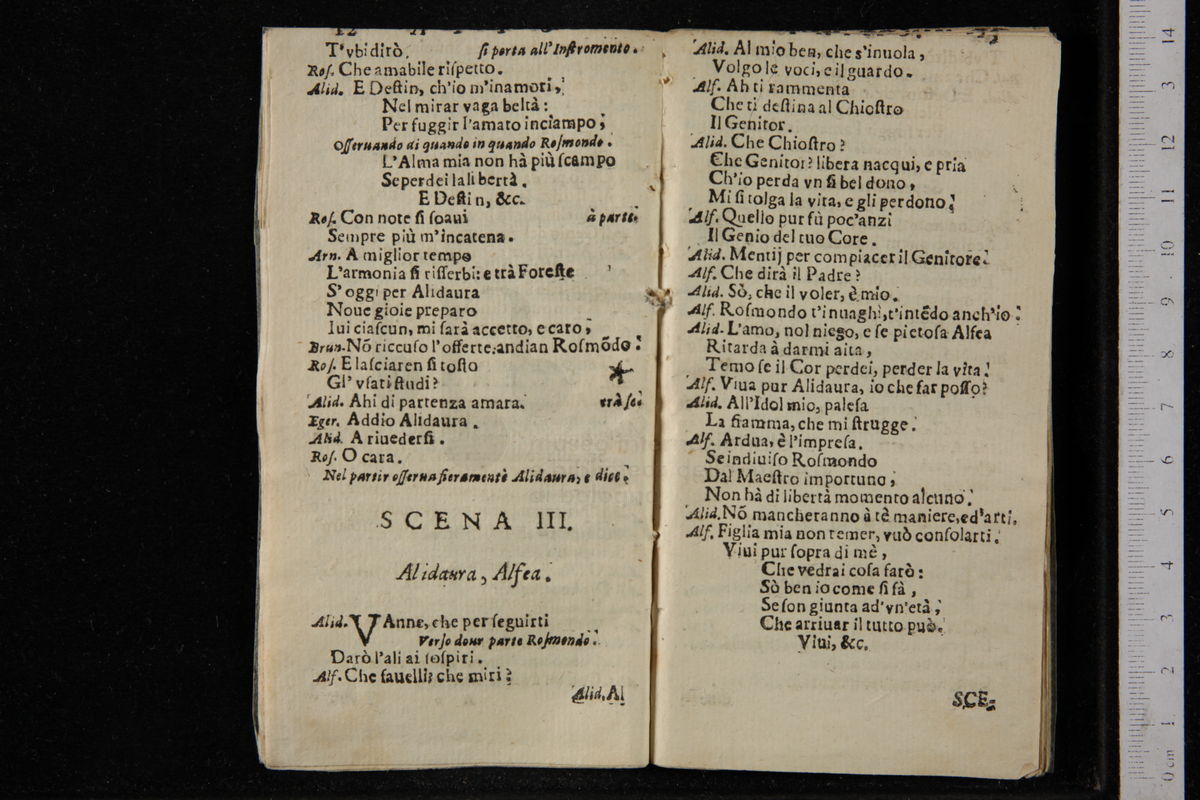 12 A T T O
T'vbidirò. si porta all'Instromento.
Ros. Che amabile rispetto.
Alid. E Destin, ch'io m'inamori,
Nel mirar vaga beltà:
Per fuggir l'amato inciampo;
Osseruando di quando in quando Rosmondo.
L'Alma mia non hà più scampo
Se perdei la libertà.
E Destin, &c.
Ros. Con note sì soaui à parte.
Sempre più m'incatena.
Arn. A miglior tempo
L'armonia si risserbi: e trà Foreste
S'oggi per Alidaura
Noue gioie preparo
Iui ciascun, mi sarà accetto, e caro;
Brun. Nõ riccuso l'offerte: andian Rosmõdo:
Ros. E lasciaren sì tosto
Gl' vsati studi?
Alid. Ahi di partenza amara. trà se.
Eger. Addio Alidaura.
Alid. A riuedersi.
Ros. O cara.
Nel partir osserua fieramentè Alidaura, e dice:
SCENA III.
Alidaura, Alfea.
Alid. VAnne, che per seguirti
Verso dour parte Rosmondo.
Darò l'ali ai sospiri.
Alf. Che fauelli? che miri?
Alid. Al
Alid. Al mio ben, che s'inuola,
Volgo le voci, e il guardo.
Alf. Ah ti rammenta
Che ti destina al Chiostro
Il Genitor.
Alid. Che Chiostro?
Che Genitor? libera nacqui, e pria
Ch'io perda vn sì bel dono,
Mi si tolga la vita, e gli perdono.
Alf. Quello pur fù poc'anzi
Il Genio del tuo Core.
Alid. Mentij per compiacer il Genitore.
Alf. Che dirà il Padre?
Alid. Sò, che il voler, è mio.
Alf. Rosmondo t'inuaghì, t'intẽdo anch'io:
Alid. L'amo, nol niego, e se pietosa Alfea
Ritarda à darmi aita,
Temo se il Cor perdei, perder la vita.
Alf. Viua pur Alidaura, io che far posso?
Alid. All'Idol mio, palesa
La fiamma, che mi strugge.
Alf. Ardua, è l'impresa.
Se indiuiso Rosmondo
Dal Maestro importuno,
Non hà di libertà momento alcuno.
Alid. Nõ mancheranno à tè maniere, ed'arti.
Alf. Figlia mia non temer, vuò consolarti.
Viui pur sopra di mè,
Che vedrai cosa farò:
Sò ben io come si fà,
Se son giunta ad'vn'età,
Che arriuar il tutto può.
Viui, &c.
SCE-